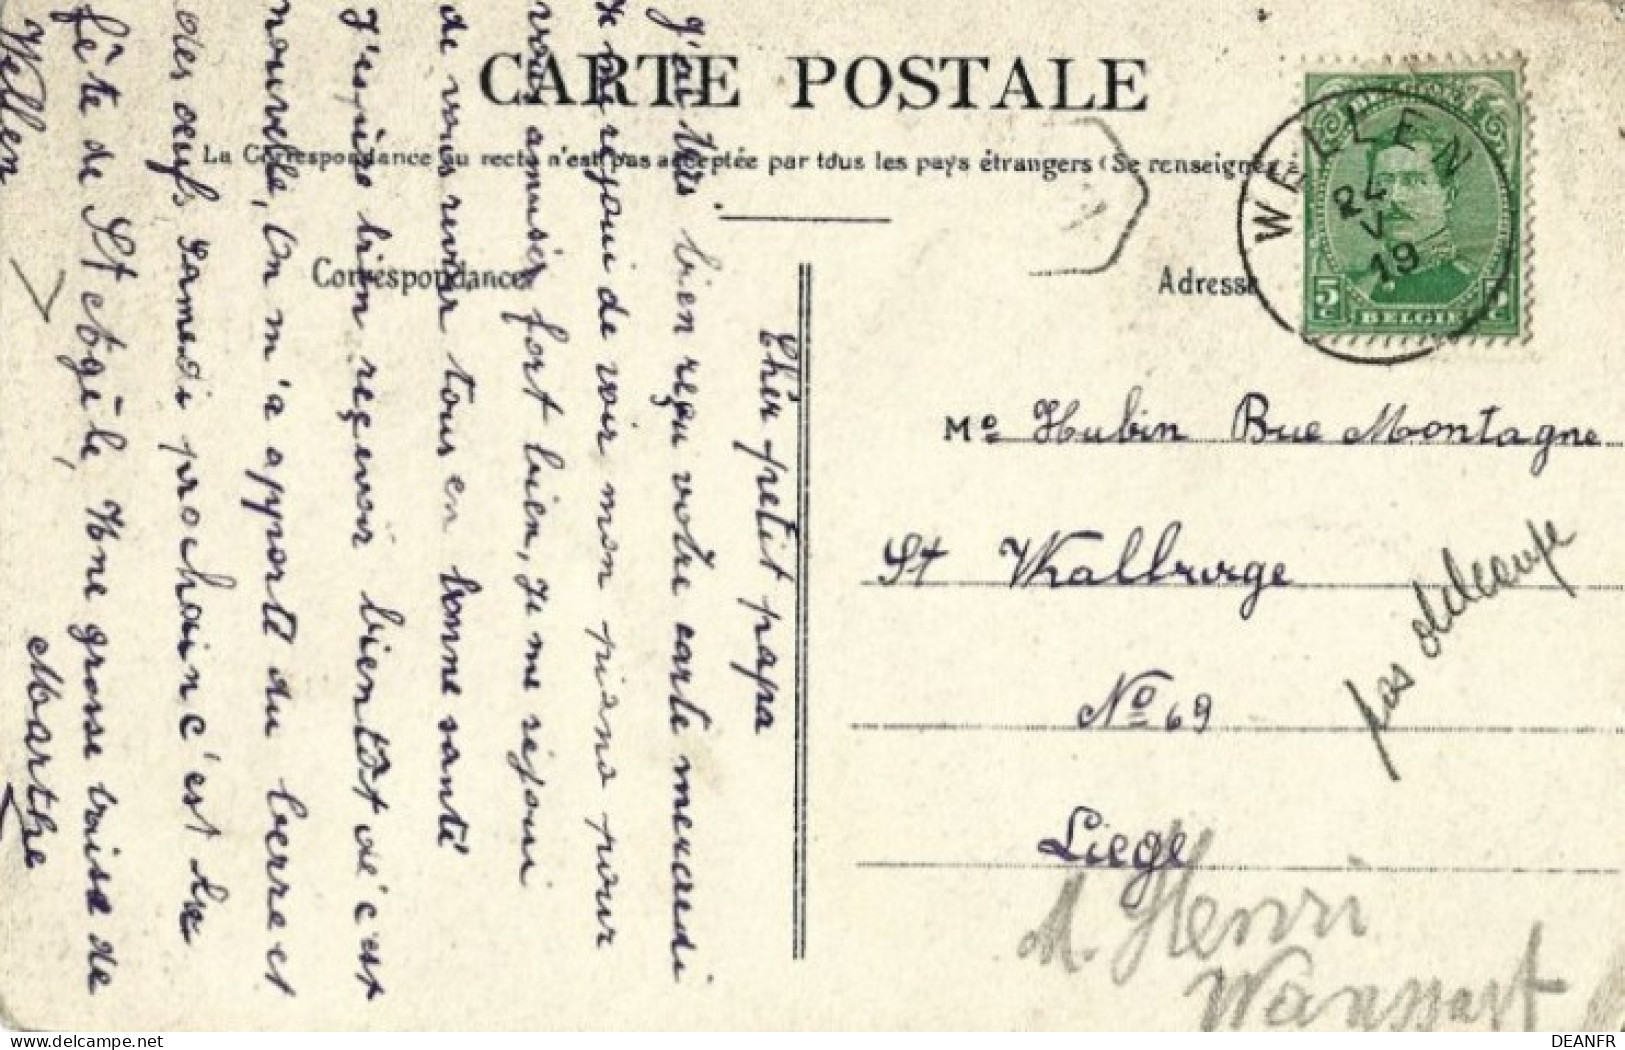 CARTE POSTALE
La Correspondance au recto n'est pas acceptée par tous les pays étrangers (Se renseigner
Correspondance
Adresse
WELLEN
24
V
19
5 c
BELGIË
Cher petit papa
J'ai très bien reçu votre carte mercredi
je me rejoui de voir mon piano pour
vous amuser fort bien, je me réjoui
de vous revoir tous en bonne santé
J'espère bien reçevoir bientôt dé c'est
nouvelle, On m'a apporté du beurre et
des oeufs samedi prochain c'est la
fête de St et Ogè-le, Une grosse baise de
Wellen
Marthe
Me Hubin Rue Montagne
St Walburge
No 69
Liège
M. Henri
Wanssart
pas
DEANFR